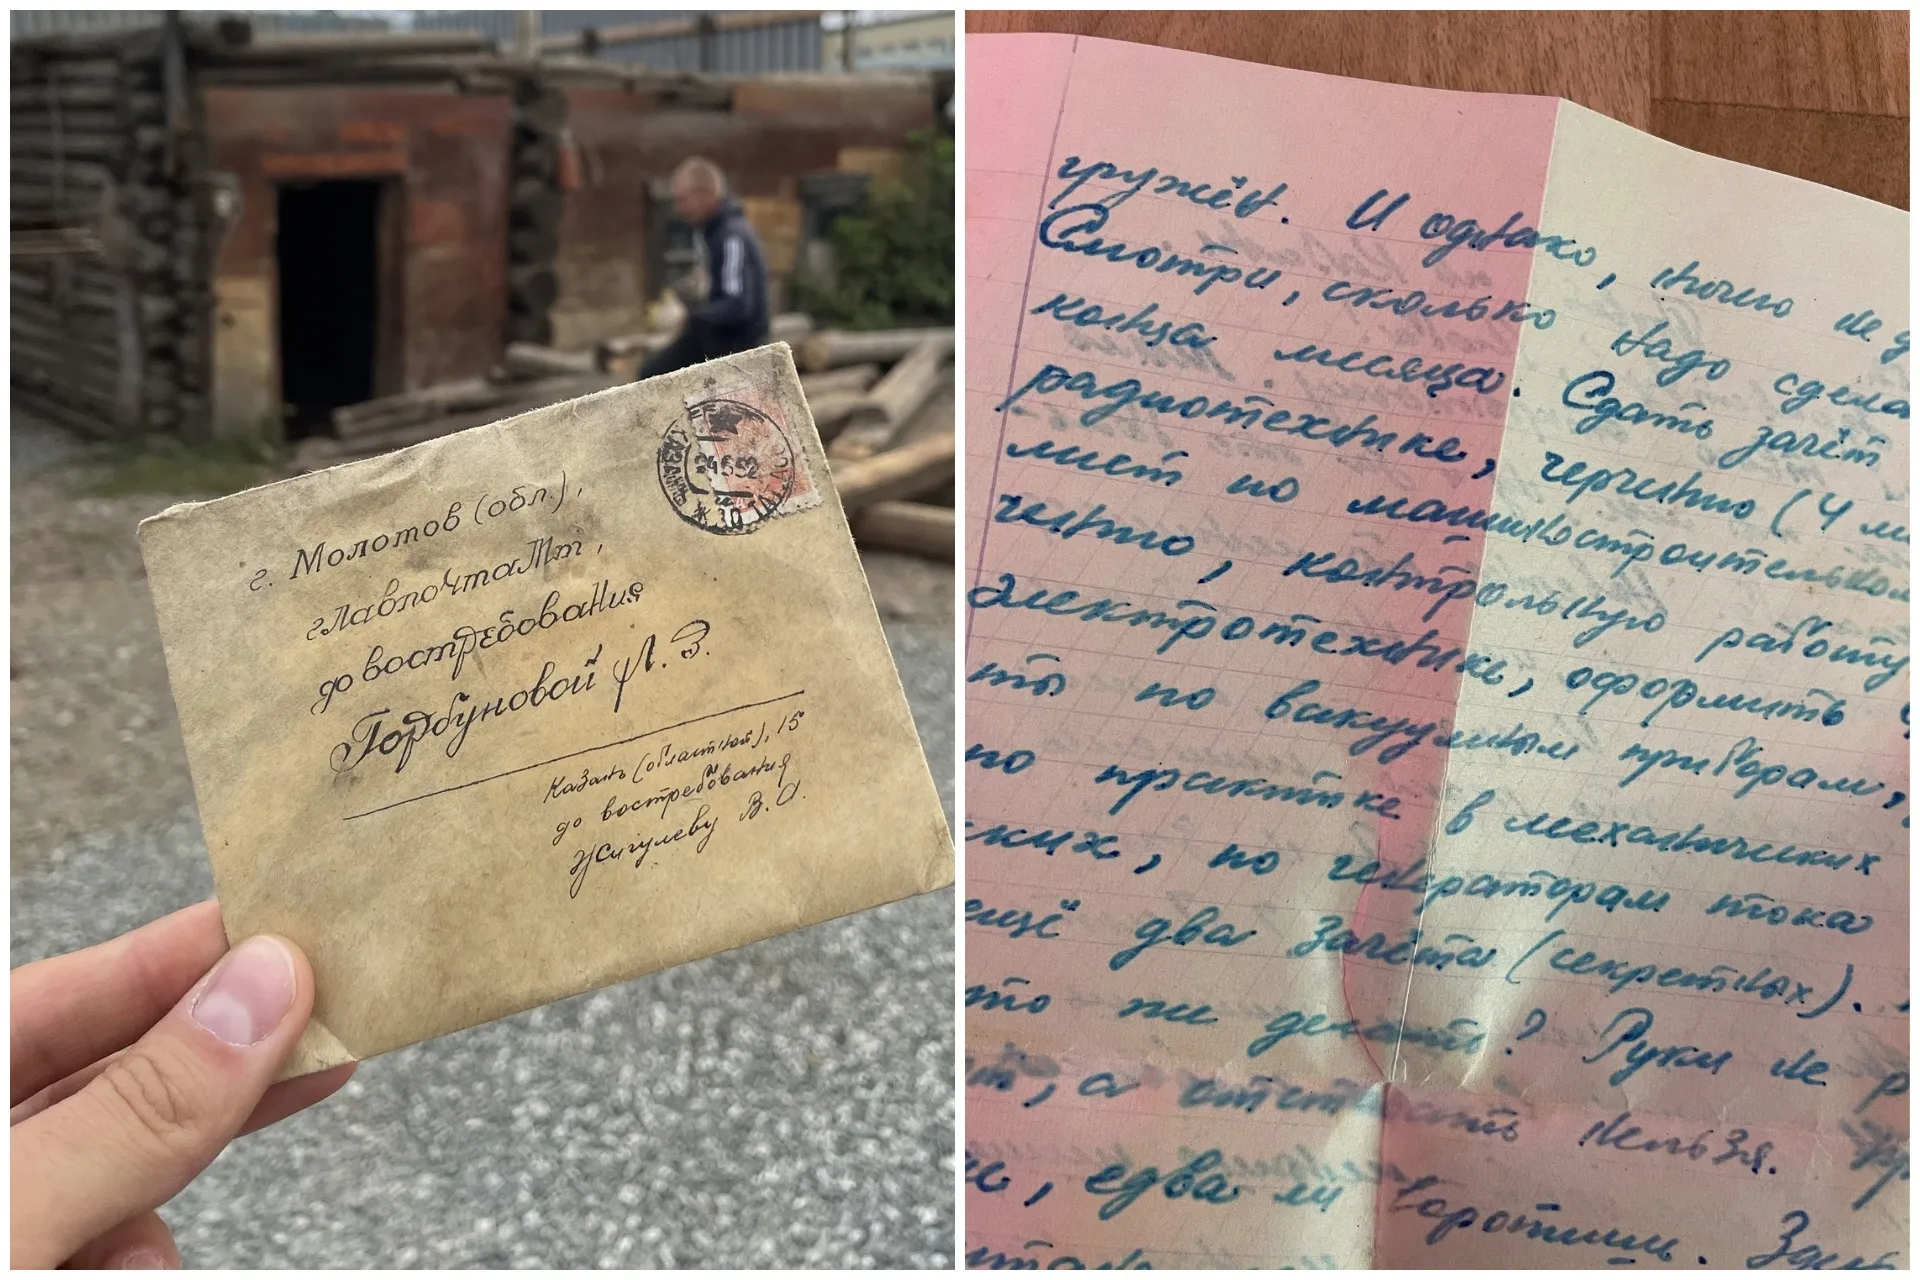 г. Молотов (обл.),
главпочтамт,
до востребования
Горбуновой Л. З.
Казань (областной), 15
до востребования
Жигулеву В. А.
КАЗАНЬ
24552
ТАТ. АССР
гружён. И однако, ничего не
Смотри, сколько надо сдела
конца месяца. Сдать зачёт
радиотехнике, черчению (4
лист по машиностроительном
чению, контрольную работу
электротехнике, оформить
ты по вакуумным приборам,
по практике в механических
ских, по генераторам тока
ещё два зачёта (секретных).
то же делать? Руки не
, а отставать нельзя.
, едва ли воротишь.